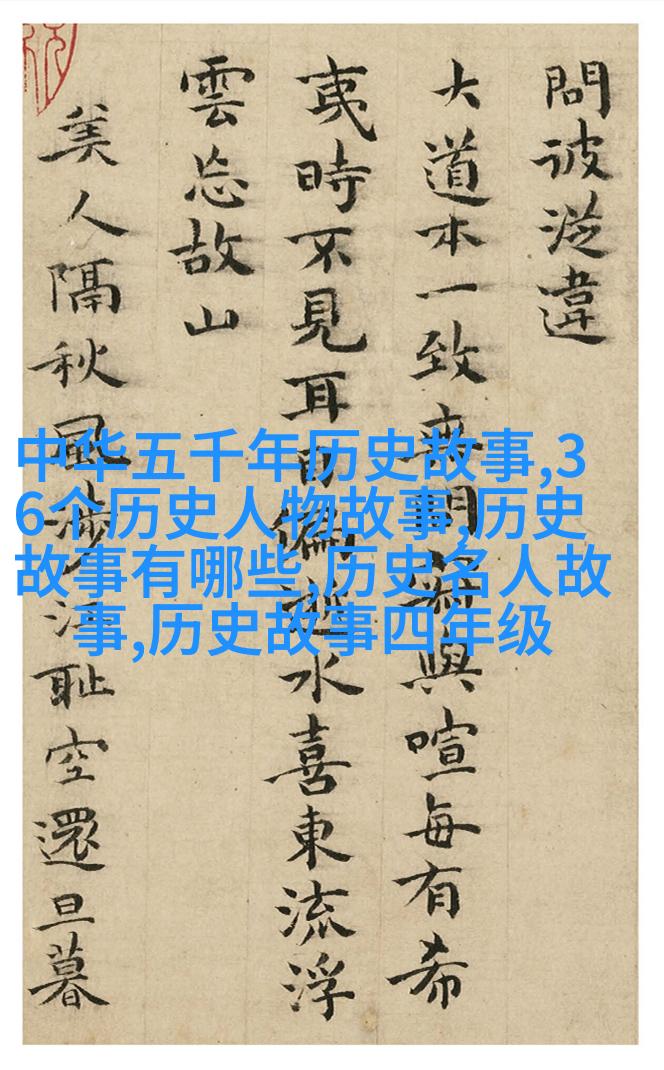 問違
大道本一致與喧每有希
夷時不見耳目偏逝水喜東流浮
雲忘故山
美人隔秋風涉江恥空還旦暮
中华五千年历史故事,3
6个历史人物故事,历史
故事有哪些,历史名人故
事,历史故事四年级